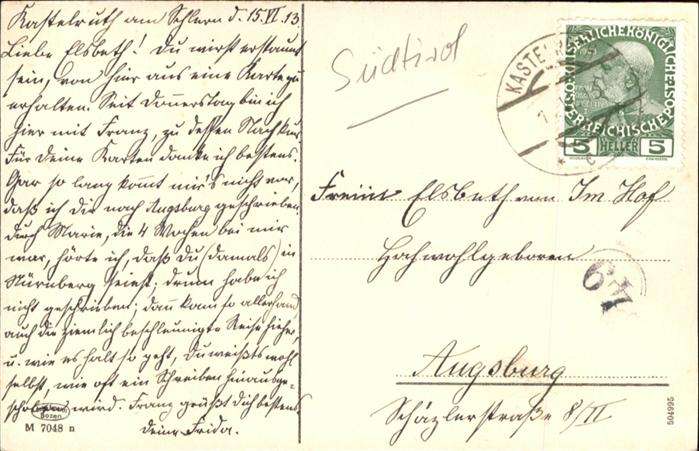 Kastelruth am Schlern d. 15.VI.13
Liebe Elsbeth! Du wirst erstaunt
sein, von hier aus eine Karte zu
erhalten. Seit Donnerstag bin ich
hier mit Franz, zu dessen Nachkur.
Für Deine Karten danke ich bestens.
Gar so lang kommt mir's nicht vor,
daß ich dir nach Augsburg geschrieben.
Durch Marie, die 4 Wochen bei mir
war, hörte ich, daß Du (damals) in
Nürnberg seiest, drum habe ich
nicht geschrieben; dann kam so allerhand
auch die ziemlich beschleunigte Reise hieher,
u. wie es halt so geht, Du weißt's wohl
selbst, wie oft ein Schreiben hinausge-
schoben wird. Franz grüßt Dich bestens,
deine Frida.
Bozen
M 7048 n
Südtirol
KASTELR
ÖSTERREICHISCHE
5 HELLER 5
Freiin Elsbeth von Im Hof
Hochwohlgeboren
49
Augsburg
Schäzlerstraße 8/II
504995